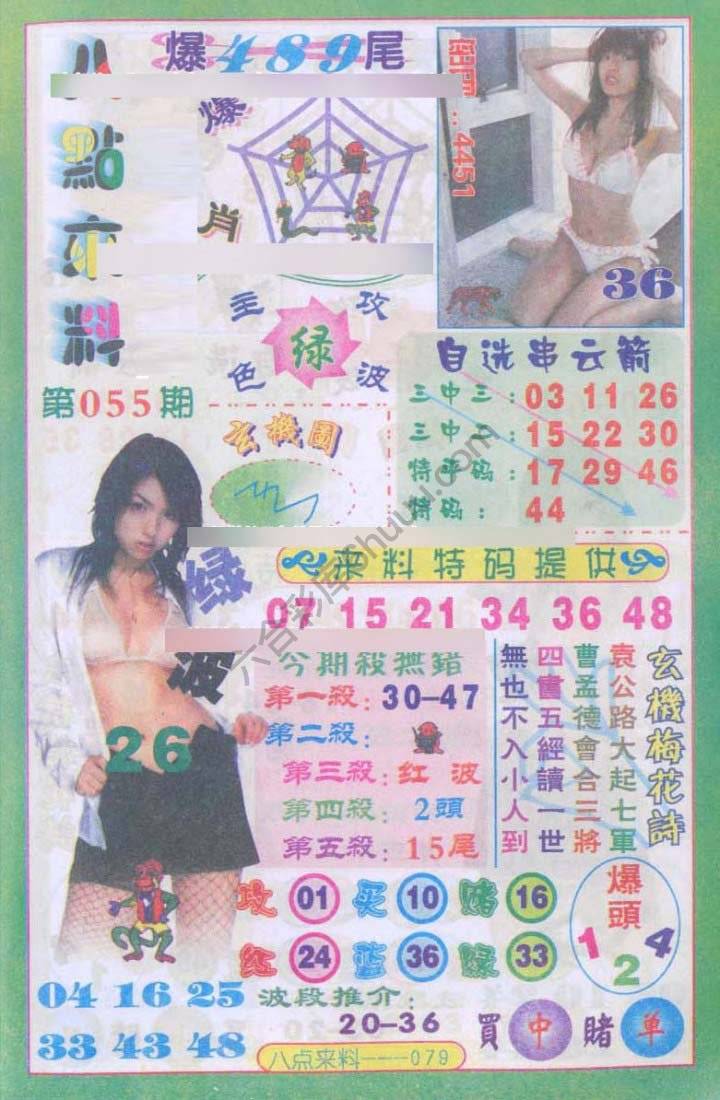 八點來料
爆489尾
爆肖
主攻
绿
色波
第055期
密码...4451
36
自选串云箭
三中三：03 11 26
三中二：15 22 30
特平码：17 29 46
特码：44
玄機圖
来料特码提供
07 15 21 34 36 48
绿波
26
今期殺無錯
第一殺：30-47
第二殺：
第三殺：红波
第四殺：2頭
第五殺：15尾
玄機梅花詩
袁公路大起七軍
曹孟德會合三將
四書五經讀一世
無也不入小人到
攻 01 买 10 赌 16
红 24 蓝 36 绿 33
爆頭
1 2 4
04 16 25
33 43 48
波段推介：
20-36
買中賭单
八点来料---079
六合彩库©huuu.com